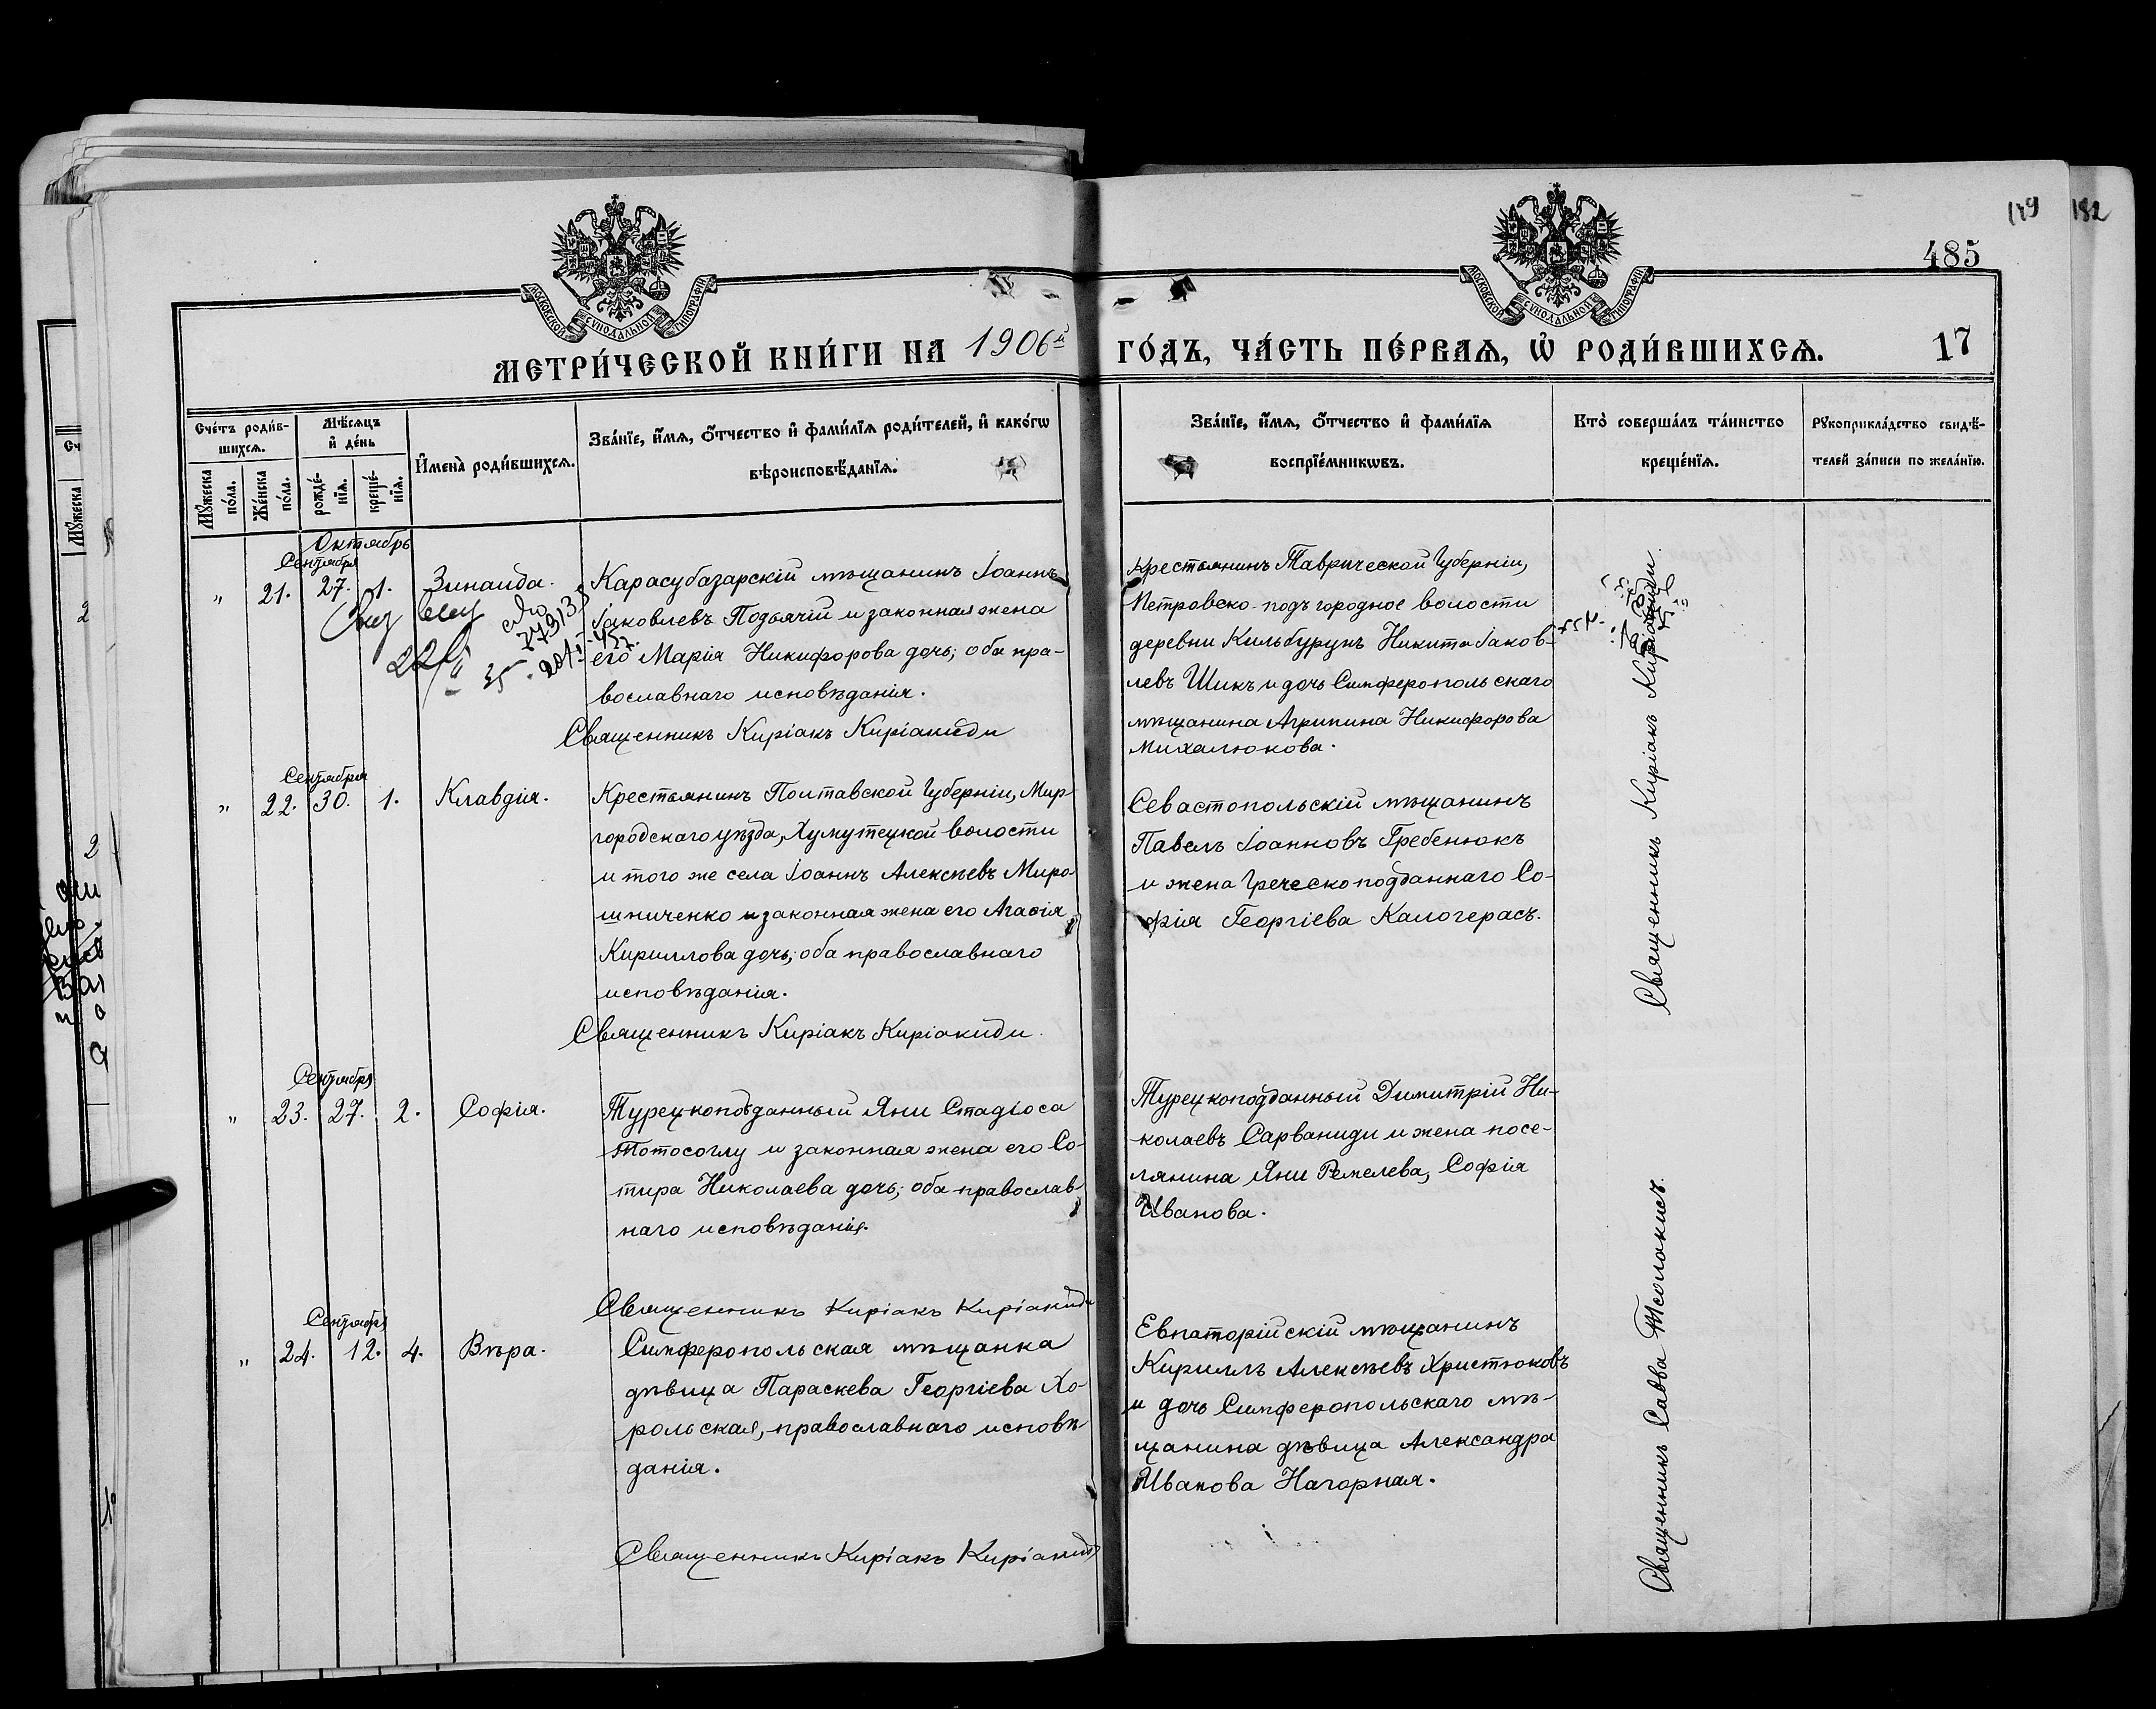 149 182
485
МОСКОВСКОЙ СѴНОДАЛЬНОЙ ТИПОГРАФІИ
МОСКОВСКОЙ СѴНОДАЛЬНОЙ ТИПОГРАФІИ
МЕТРИ́ЧЕСКОЙ КНИ́ГИ НА 1906й ГО́ДЪ, ЧА́СТЬ ПЕ́РВАѦ, Ѡ҆ РОДИ́ВШИХСѦ. 17
Сче́тъ роди́в-
шихсѧ.
Мꙋ́жеска
по́ла.
Же́нска
по́ла.
Мѣ́сѧцъ
и҆ де́нь
рожде́-
нїѧ.
креще́-
нїѧ.
И҆мена̀ роди́вшихсѧ.
Зва́нїе, и҆́мѧ, ѻ҆́тчество и҆ фами́лїѧ роди́телей, и҆ како́гѡ
вѣроисповѣ́данїѧ.
Зва́нїе, и҆́мѧ, ѻ҆́тчество и҆ фами́лїѧ
воспрїе́мникѡвъ.
Кто̀ соверша́лъ та́инство
креще́нїѧ.
Рꙋкоприкла́дство свидѣ́-
телей за́писи по жела́нїю.
Октябрь
Сентября
" 21. 27. 1. Зинаида.
Карасубазарскій мѣщанинъ Іоаннъ
Іаковлевъ Подьячій и законная жена
его Марія Никифорова дочь; оба пра-
вославнаго исповѣданія.
Священникъ Киріакъ Киріакиди
Крестьянинъ Таврической Губерніи,
Петровско-подъ городное волости
деревни Кильбурунъ Никита Іаков-
левъ Шикъ и дочь Симферопольскаго
мѣщанина Агрипина Никифорова
Михалюкова.
Священникъ Киріакъ Киріакиди.
Сентября
" 22. 30. 1. Клавдія.
Крестьянинъ Полтавской Губерніи, Мир-
городскаго уѣзда, Хумутецкой волости
и того же села Іоаннъ Алексѣевъ Миро-
шниченко и законная жена его Агаѳія
Кириллова дочь; оба православнаго
исповѣданія.
Священникъ Киріакъ Киріакиди.
Севастопольскій мѣщанинъ
Павелъ Іоанновъ Гребенюкъ
и жена Греческоподданнаго Со-
фія Георгіева Калогерасъ.
Сентября
" 23. 27. 2. Софія.
Турецкоподданный Яни Стадіоса
Тотосоглу и законная жена его Со-
тира Николаева дочь; оба православ-
наго исповѣданія.
Священникъ Киріакъ Киріакиди
Турецкоподданный Димитрій Ни-
колаевъ Сарваниди и жена посе-
лянина Яни Ремелева, Софія
Иванова.
Священникъ Савва Тсолакисъ.
Сентября
" 24. 12. 4. Вѣра.
Симферопольская мѣщанка
дѣвица Параскева Георгіева Хо-
рольская, православнаго исповѣ-
данія.
Священникъ Киріакъ Киріакиди
Евпаторійскій мѣщанинъ
Кириллъ Алексѣевъ Христюковъ
и дочь Симферопольскаго мѣ-
щанина дѣвица Александра
Иванова Нагорная.